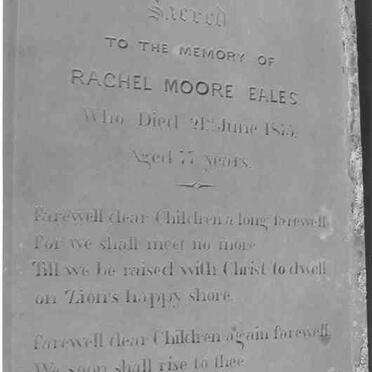 Sacred
TO THE MEMORY OF
RACHEL MOORE EALES
Who Died 21st June 1875.
Aged 77 years.
Farewell dear Children a long farewell
For we shall meet no more
Till we be raised with Christ to dwell
on Zion's happy shore.
Farewell dear Children again farewell
We soon shall rise to thee